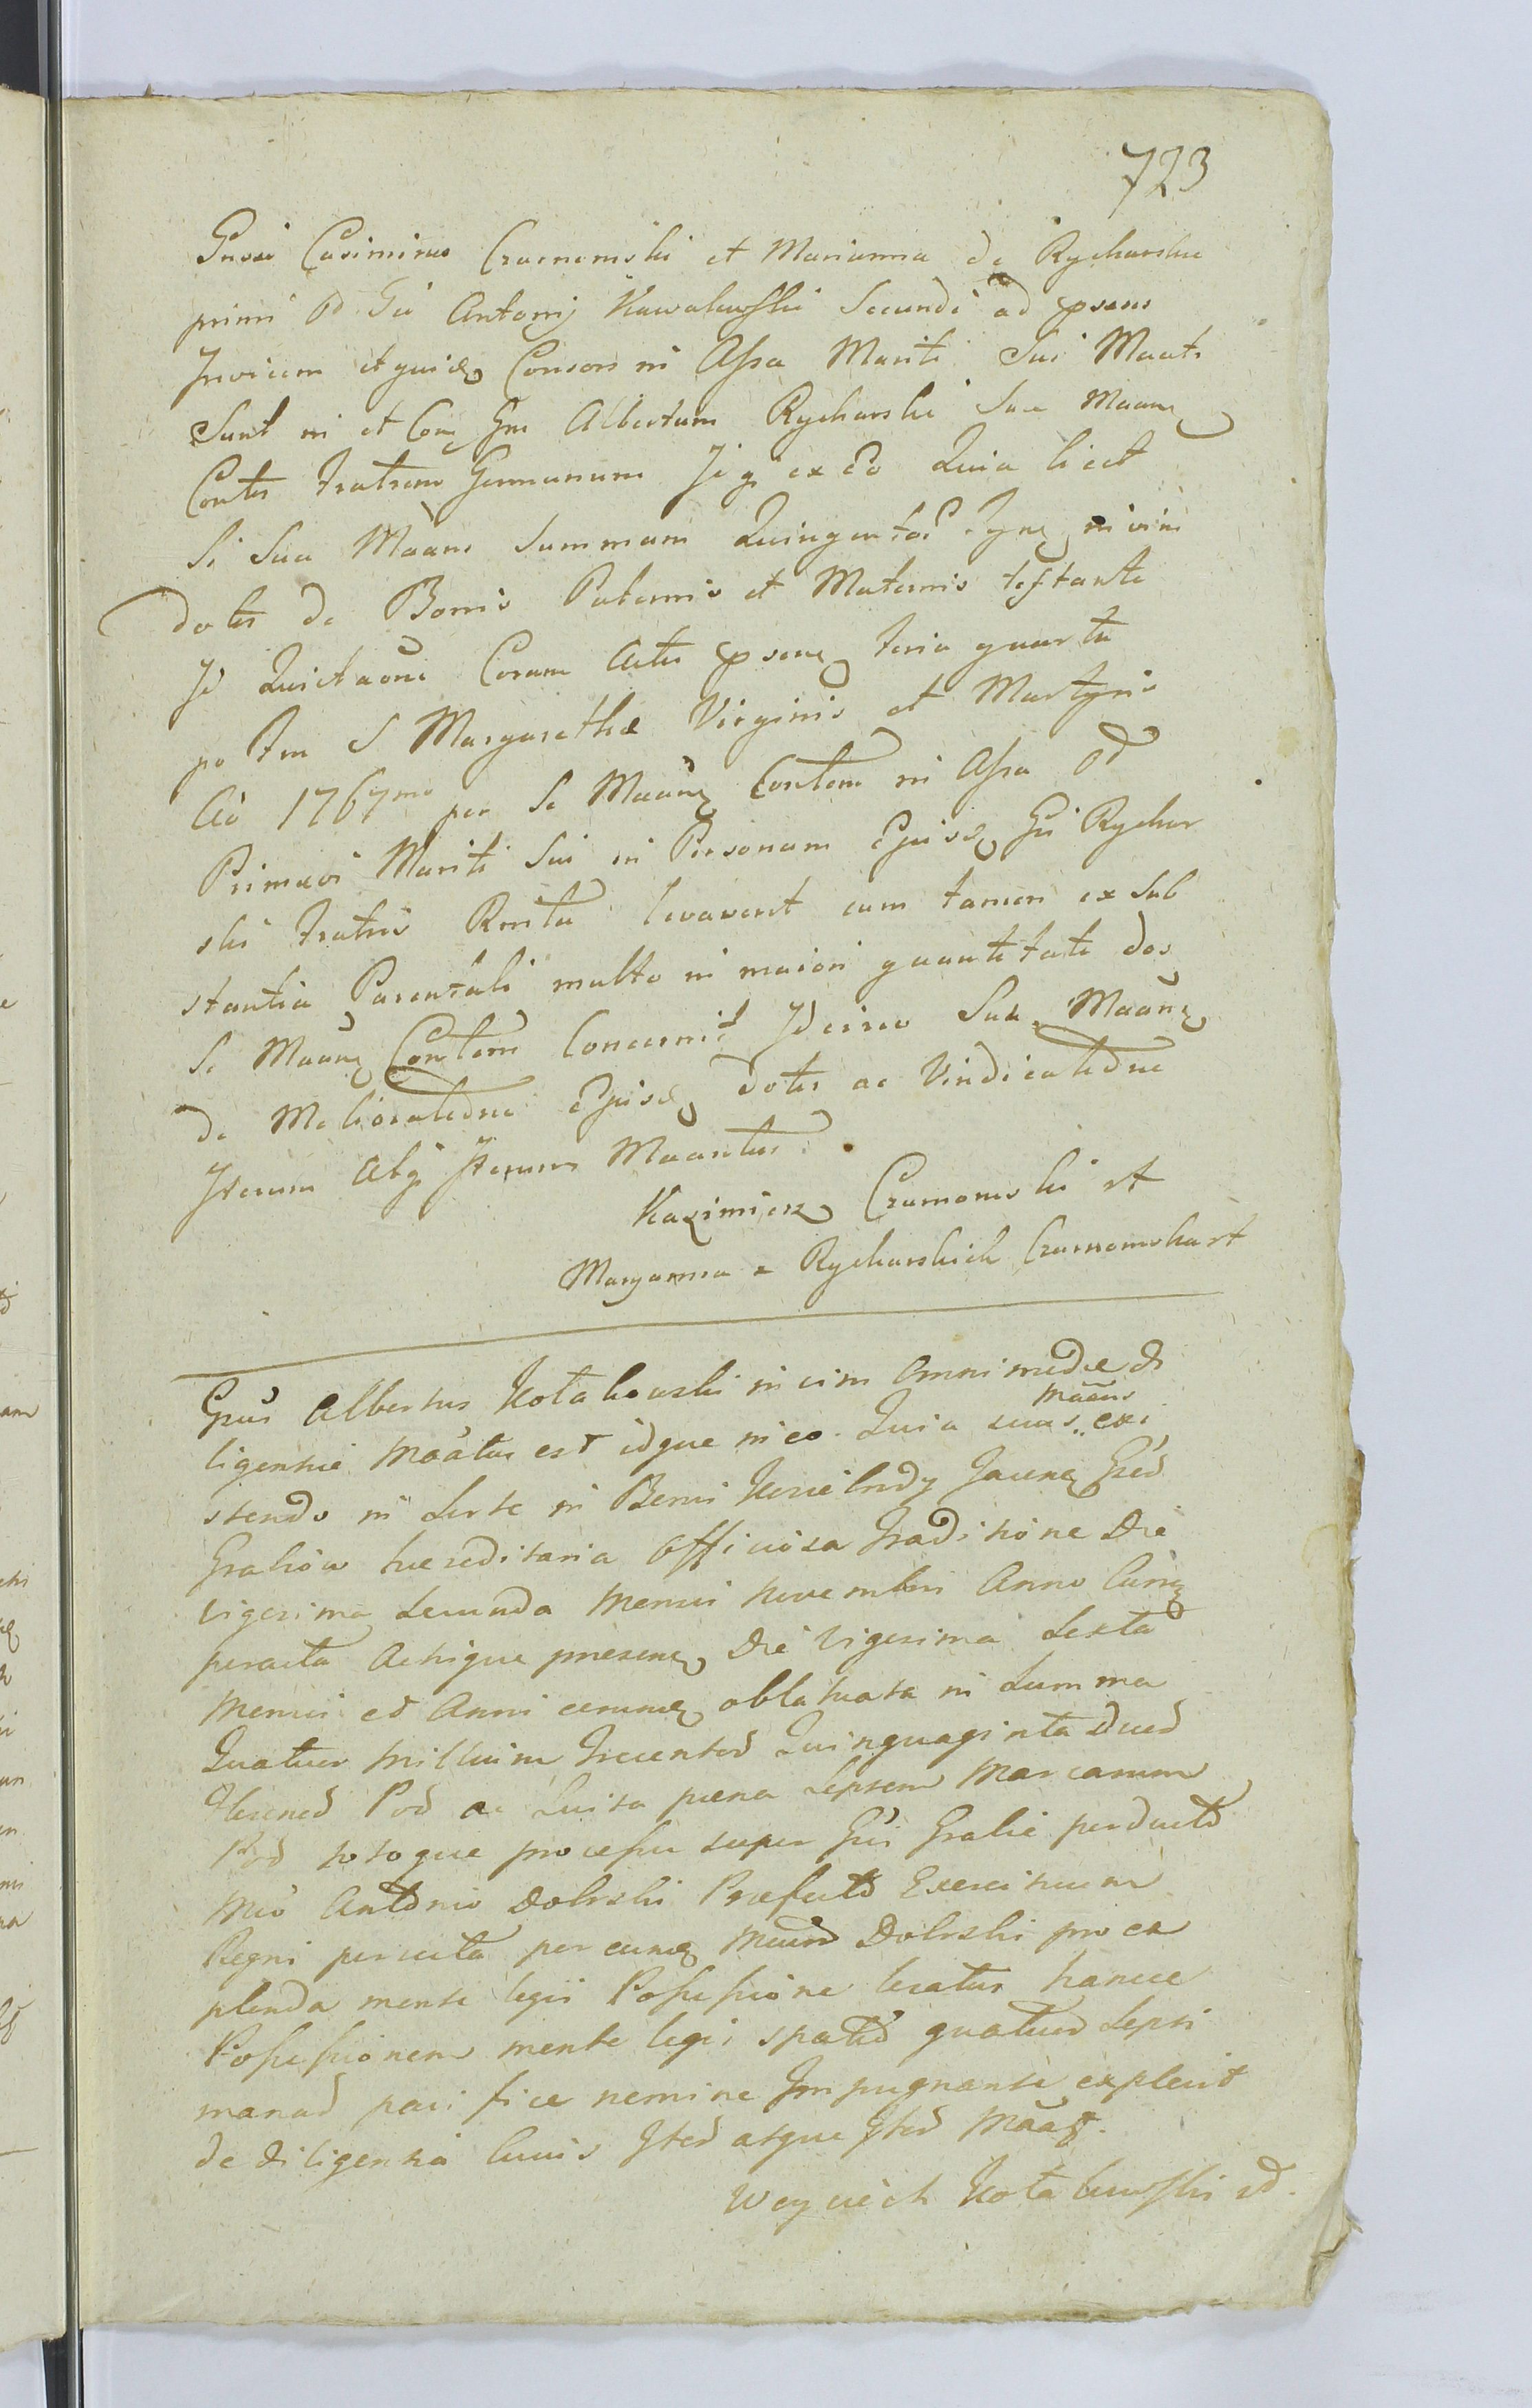 723
Gnosi Casimirus Czarnomski et Marianna de Rycharskie
primi Od Gii Antonij Kawalewskie Secundi ad psens
Invicem et quidem Consors in Assa Mariti Sui Maats
Sunt in et Con Gm Albertum Rycharski Sua Maane
Contis Fratrem Germanum Jegi ex Eo Quia licet
Si Sua Maans Summam Quingentor in vim
dotis de Bonis Paternis et Maternis testante
Jd Quictaone Coram Actis psene feria quarta
po Fm S Margarethæ Virginis et Martyris
Aõ 1767mo per Se Maane Contem in Assa Od
Primævi Mariti Sui in Personam Ejusd Gii Rychar
ski Fratris Rnita levavent cum tamen ex Sub
stantia Parentali multo in maiori quantitate dos
Se Maane Contem Concernit Idcirco Sua Maane
de Melioratedne Ejusd dotis ac Vindicatedne
Iterum Atq Iterum Maantur.
Kazimierz Czarnomski et
Maryanna z Rycharskich Czarnomska st
Gnus Albertus Kotakowski in vim Omnimodæ di
ligentiæ Maatus est idque in eo. Quia suus Maans exi
stendo in Surte in Benis Kucielndy Jacene Gred
Grabów hæreditaria Officiosa Traditione Die
vigesima Secunda Mensis Novembri Anno Curre
peracta Actisque presene Die Vigesima Sexta
Mensis et Anni earume oblatuata in Summa
Quatuor Millium Trecentod Quinquaginta Dued
Florened Pod ac Luita pæna Septem Marcarum
Pod totoque processu super Gii Gralie perducto
Mco Antonio Dolrski Præfecto Exercituum
Regni peracta per eume Mcum Dolrski pro ex
plenda mente legis Possessione lecatur hance
Possessionem mente legis spatid quatuor Septi
manad pacifice nemine Impugnante explevit
de diligentia hujus Ited atque Ited Maat.
Woyciech Kotakowski sd.